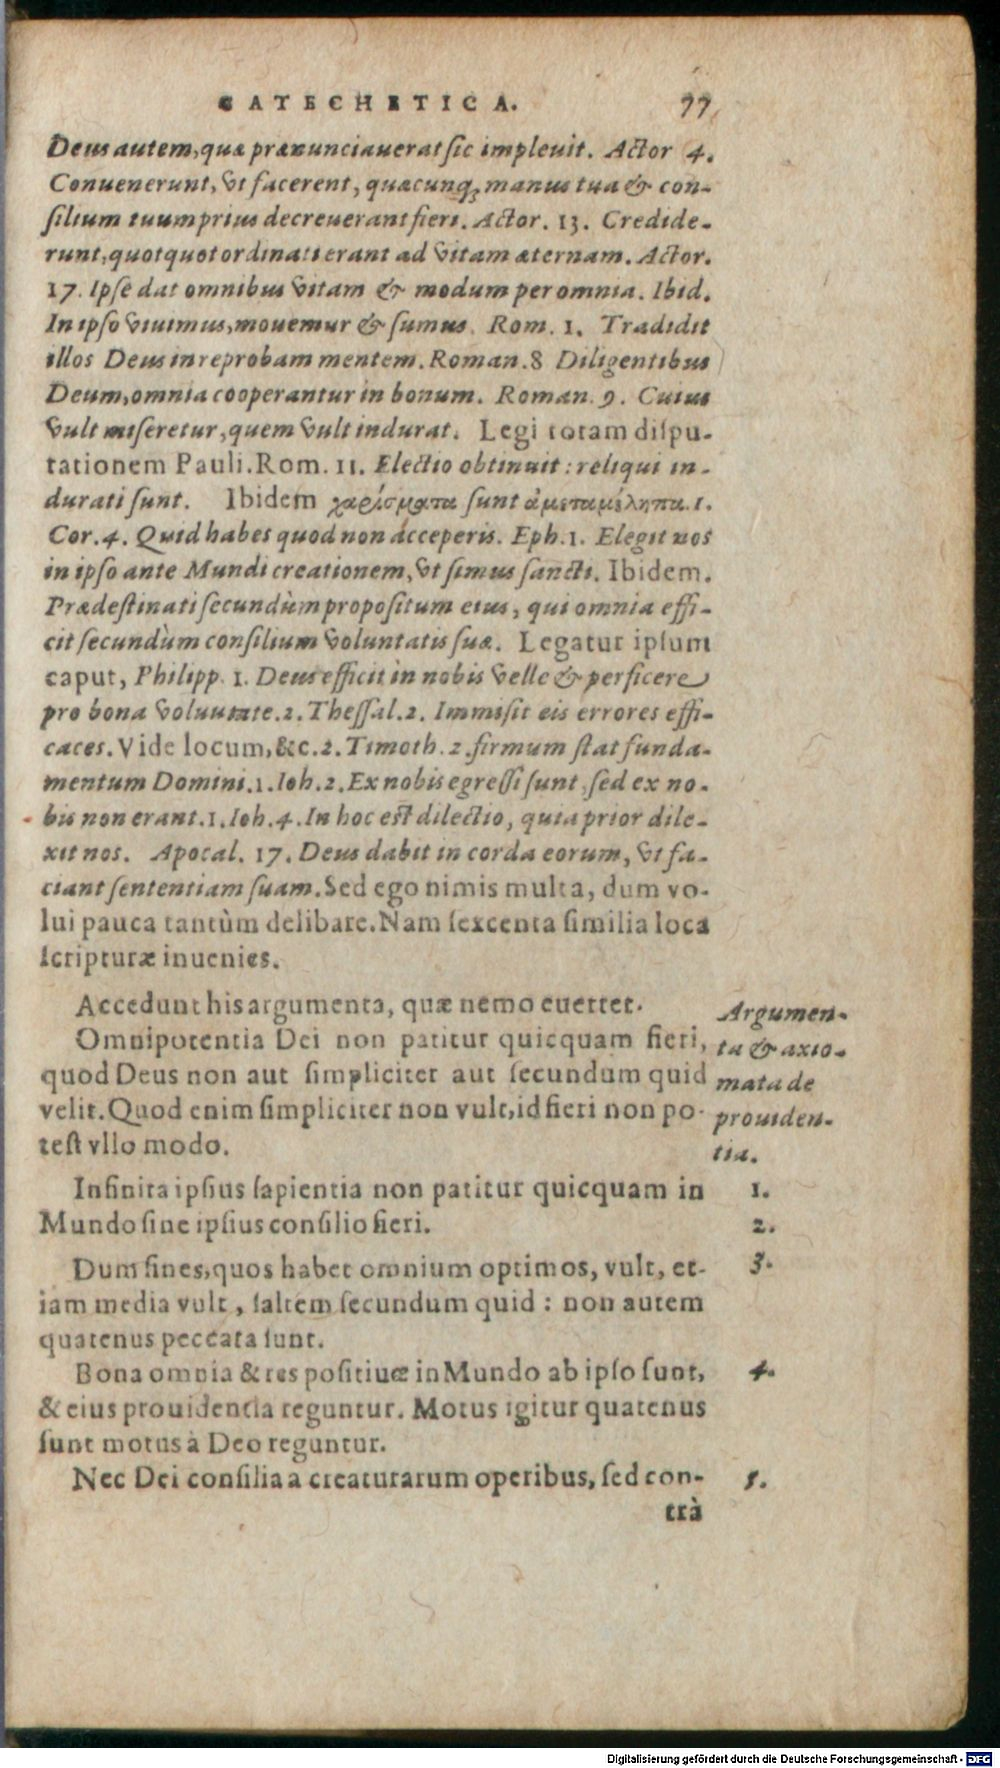 CATECHETICA. 77
Deus autem, quæ prænunciauerat sic impleuit. Actor 4.
Conuenerunt, vt facerent, quæcunq; manus tua & con-
silium tuum prius decreuerant fieri. Actor. 13. Credide-
runt, quotquot ordinati erant ad vitam æternam. Actor.
17. Ipse dat omnibus vitam & modum per omnia. Ibid.
In ipso viuimus, mouemur & sumus. Rom. 1. Tradidit
illos Deus in reprobam mentem. Roman. 8 Diligentibus
Deum, omnia cooperantur in bonum. Roman. 9. Cuius
vult miseretur, quem vult indurat. Legi totam dispu-
tationem Pauli. Rom. 11. Electio obtinuit: reliqui in-
durati sunt. Ibidem χαρίσματα sunt ἀμεταμέλητα. 1.
Cor. 4. Quid habes quod non acceperis. Eph. 1. Elegit nos
in ipso ante Mundi creationem, vt simus sancti. Ibidem.
Prædestinati secundùm propositum eius, qui omnia effi-
cit secundùm consilium voluntatis suæ. Legatur ipsum
caput, Philipp. 1. Deus efficit in nobis velle & perficere
pro bona voluutate. 2. Thessal. 2. Immisit eis errores effi-
caces. Vide locum, &c. 2. Timoth. 2. firmum stat funda-
mentum Domini. 1. Ioh. 2. Ex nobis egressi sunt, sed ex no-
bis non erant. 1. Ioh. 4. In hoc est dilectio, quia prior dile-
xit nos. Apocal. 17. Deus dabit in corda eorum, vt fa-
ciant sententiam suam. Sed ego nimis multa, dum vo-
lui pauca tantùm delibare. Nam sexcenta similia loca
scripturæ inuenies.
Accedunt his argumenta, quæ nemo euertet.
Omnipotentia Dei non patitur quicquam fieri,
quod Deus non aut simpliciter aut secundum quid
velit. Quod enim simpliciter non vult, id fieri non po-
test vllo modo.
Argumen-
ta & axio-
mata de
prouiden-
tia.
Infinita ipsius sapientia non patitur quicquam in 1.
Mundo sine ipsius consilio fieri. 2.
Dum fines, quos habet omnium optimos, vult, et- 3.
iam media vult, saltem secundum quid: non autem
quatenus peccata sunt.
Bona omnia & res positiuæ in Mundo ab ipso sunt, 4.
& eius prouidentia reguntur. Motus igitur quatenus
sunt motus à Deo reguntur.
Nec Dei consilia a creaturarum operibus, sed con- 5.
trà
Digitalisierung gefördert durch die Deutsche Forschungsgemeinschaft - DFG